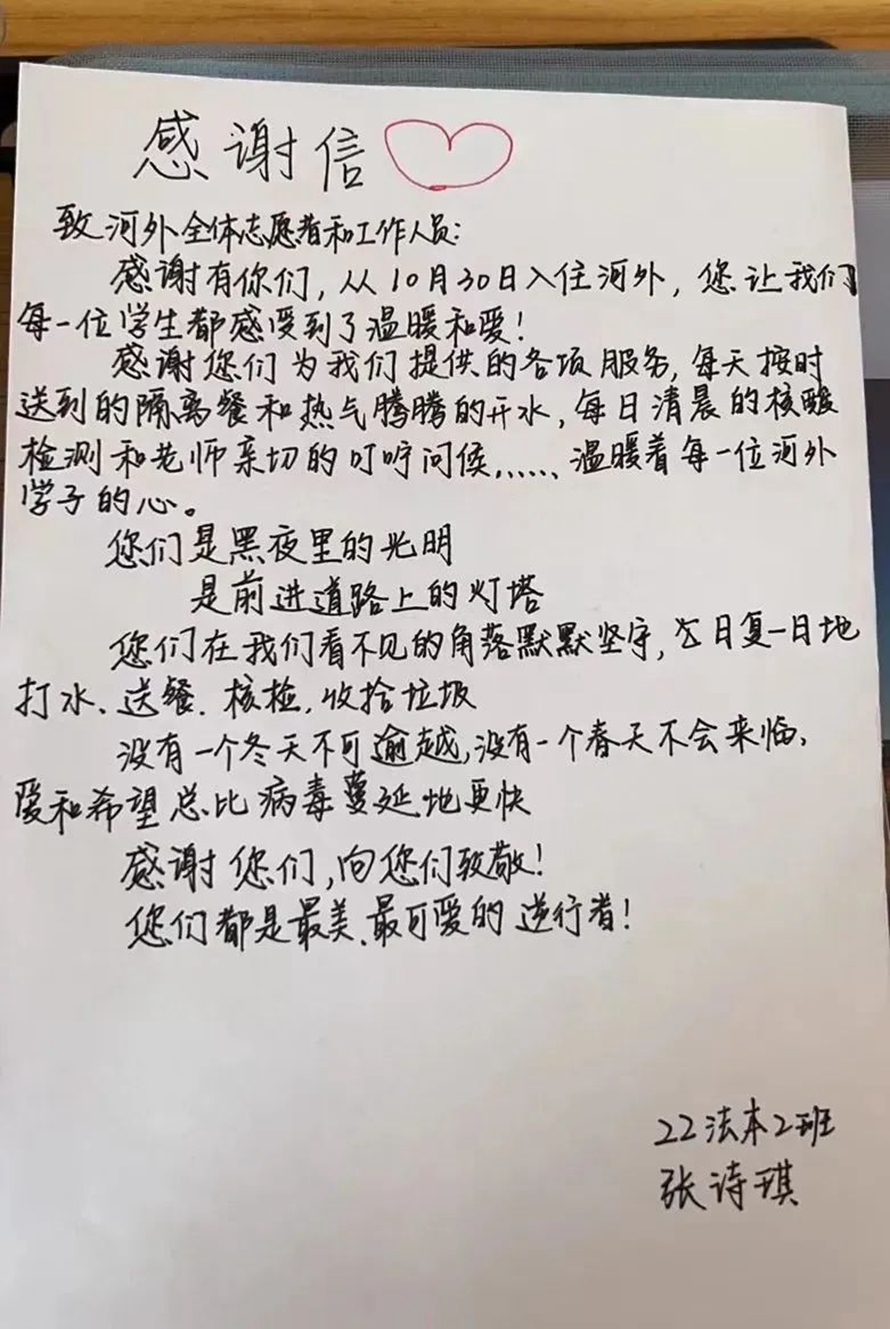 感谢信
致河外全体志愿者和工作人员:
感谢有你们,从10月30日入住河外,您让我们
每一位学生都感受到了温暖和爱!
感谢您们为我们提供的各项服务,每天按时
送到的隔离餐和热气腾腾的开水,每日清晨的核酸
检测和老师亲切的叮咛问候......温暖着每一位河外
学子的心。
您们是黑夜里的光明
是前进道路上的灯塔
您们在我们看不见的角落默默坚守,日复一日地
打水、送餐、核检,收拾垃圾
没有一个冬天不可逾越,没有一个春天不会来临、
爱和希望总比病毒蔓延地更快
感谢您们,向您们致敬!
您们都是最美、最可爱的逆行者!
22法本2班
张诗琪